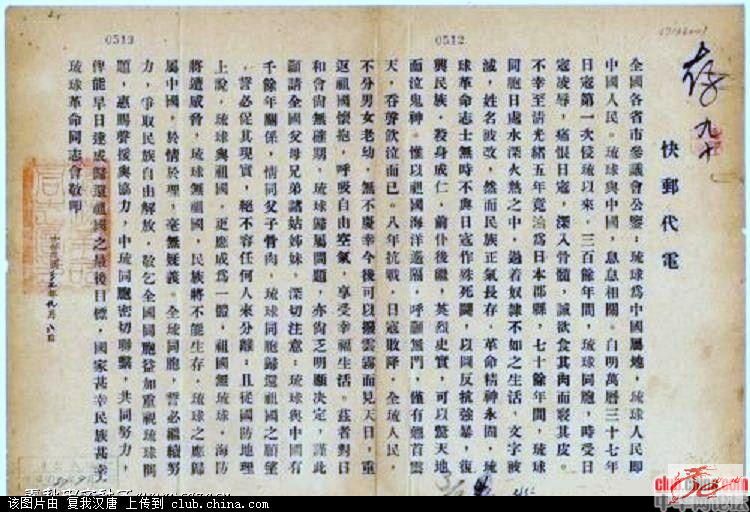 0512
存
快郵代電
全國各省市參議會公鑒：琉球為中國屬地，琉球人民即
中國人民。琉球與中國，息息相關。自明萬曆三十七年
日寇第一次侵琉以來，三百餘年間，琉球同胞，時受日
寇凌辱，痛恨日寇，深入骨髓，誠欲食其肉而寢其皮。
不幸至清光緒五年竟淪為日本郡縣，七十餘年間，琉球
同胞日處水深火熱之中，過着奴隸不如之生活，文字被
滅，姓名被改，然而民族正氣長存，革命精神永固，琉
球革命志士無時不與日寇作殊死鬪，以圖反抗強暴，復
興民族，殺身成仁，前仆後繼，英烈史實，可以驚天地
而泣鬼神。惟以祖國海洋遙隔，呼籲無門，僅有翹首雲
天，吞聲飲泣而已。八年抗戰，日寇敗降，全琉人民，
0513
不分男女老幼，無不慶幸今後可以撥雲霧而見天日，重
返祖國懷抱，呼吸自由空氣，享受幸福生活。茲者對日
和會尚無確期，琉球歸屬問題，亦尚乏明顯決定，謹此
籲請全國父母兄弟諸姑姊妹，深切注意：琉球與中國有
千餘年關係，情同父子骨肉，琉球同胞歸還祖國之願望
，誓必促其現實，絕不容任何人來分離；且從國防地理
上說，琉球與祖國，更應成為一體，祖國無琉球，海防
將遭威脅，琉球無祖國，民族將不能生存，琉球之應歸
屬中國，於情於理，毫無疑義。全琉同胞，誓必繼續努
力，爭取民族自由解放，敬乞全國同胞益加重視琉球問
題，惠賜聲援與協力，中琉同胞密切聯繫，共同努力，
俾能早日達成歸還祖國之最後目標，國家甚幸民族甚幸
琉球革命同志會敬叩
中華民國 年九月八日
该图片由 复我汉唐 上传到 club.china.com